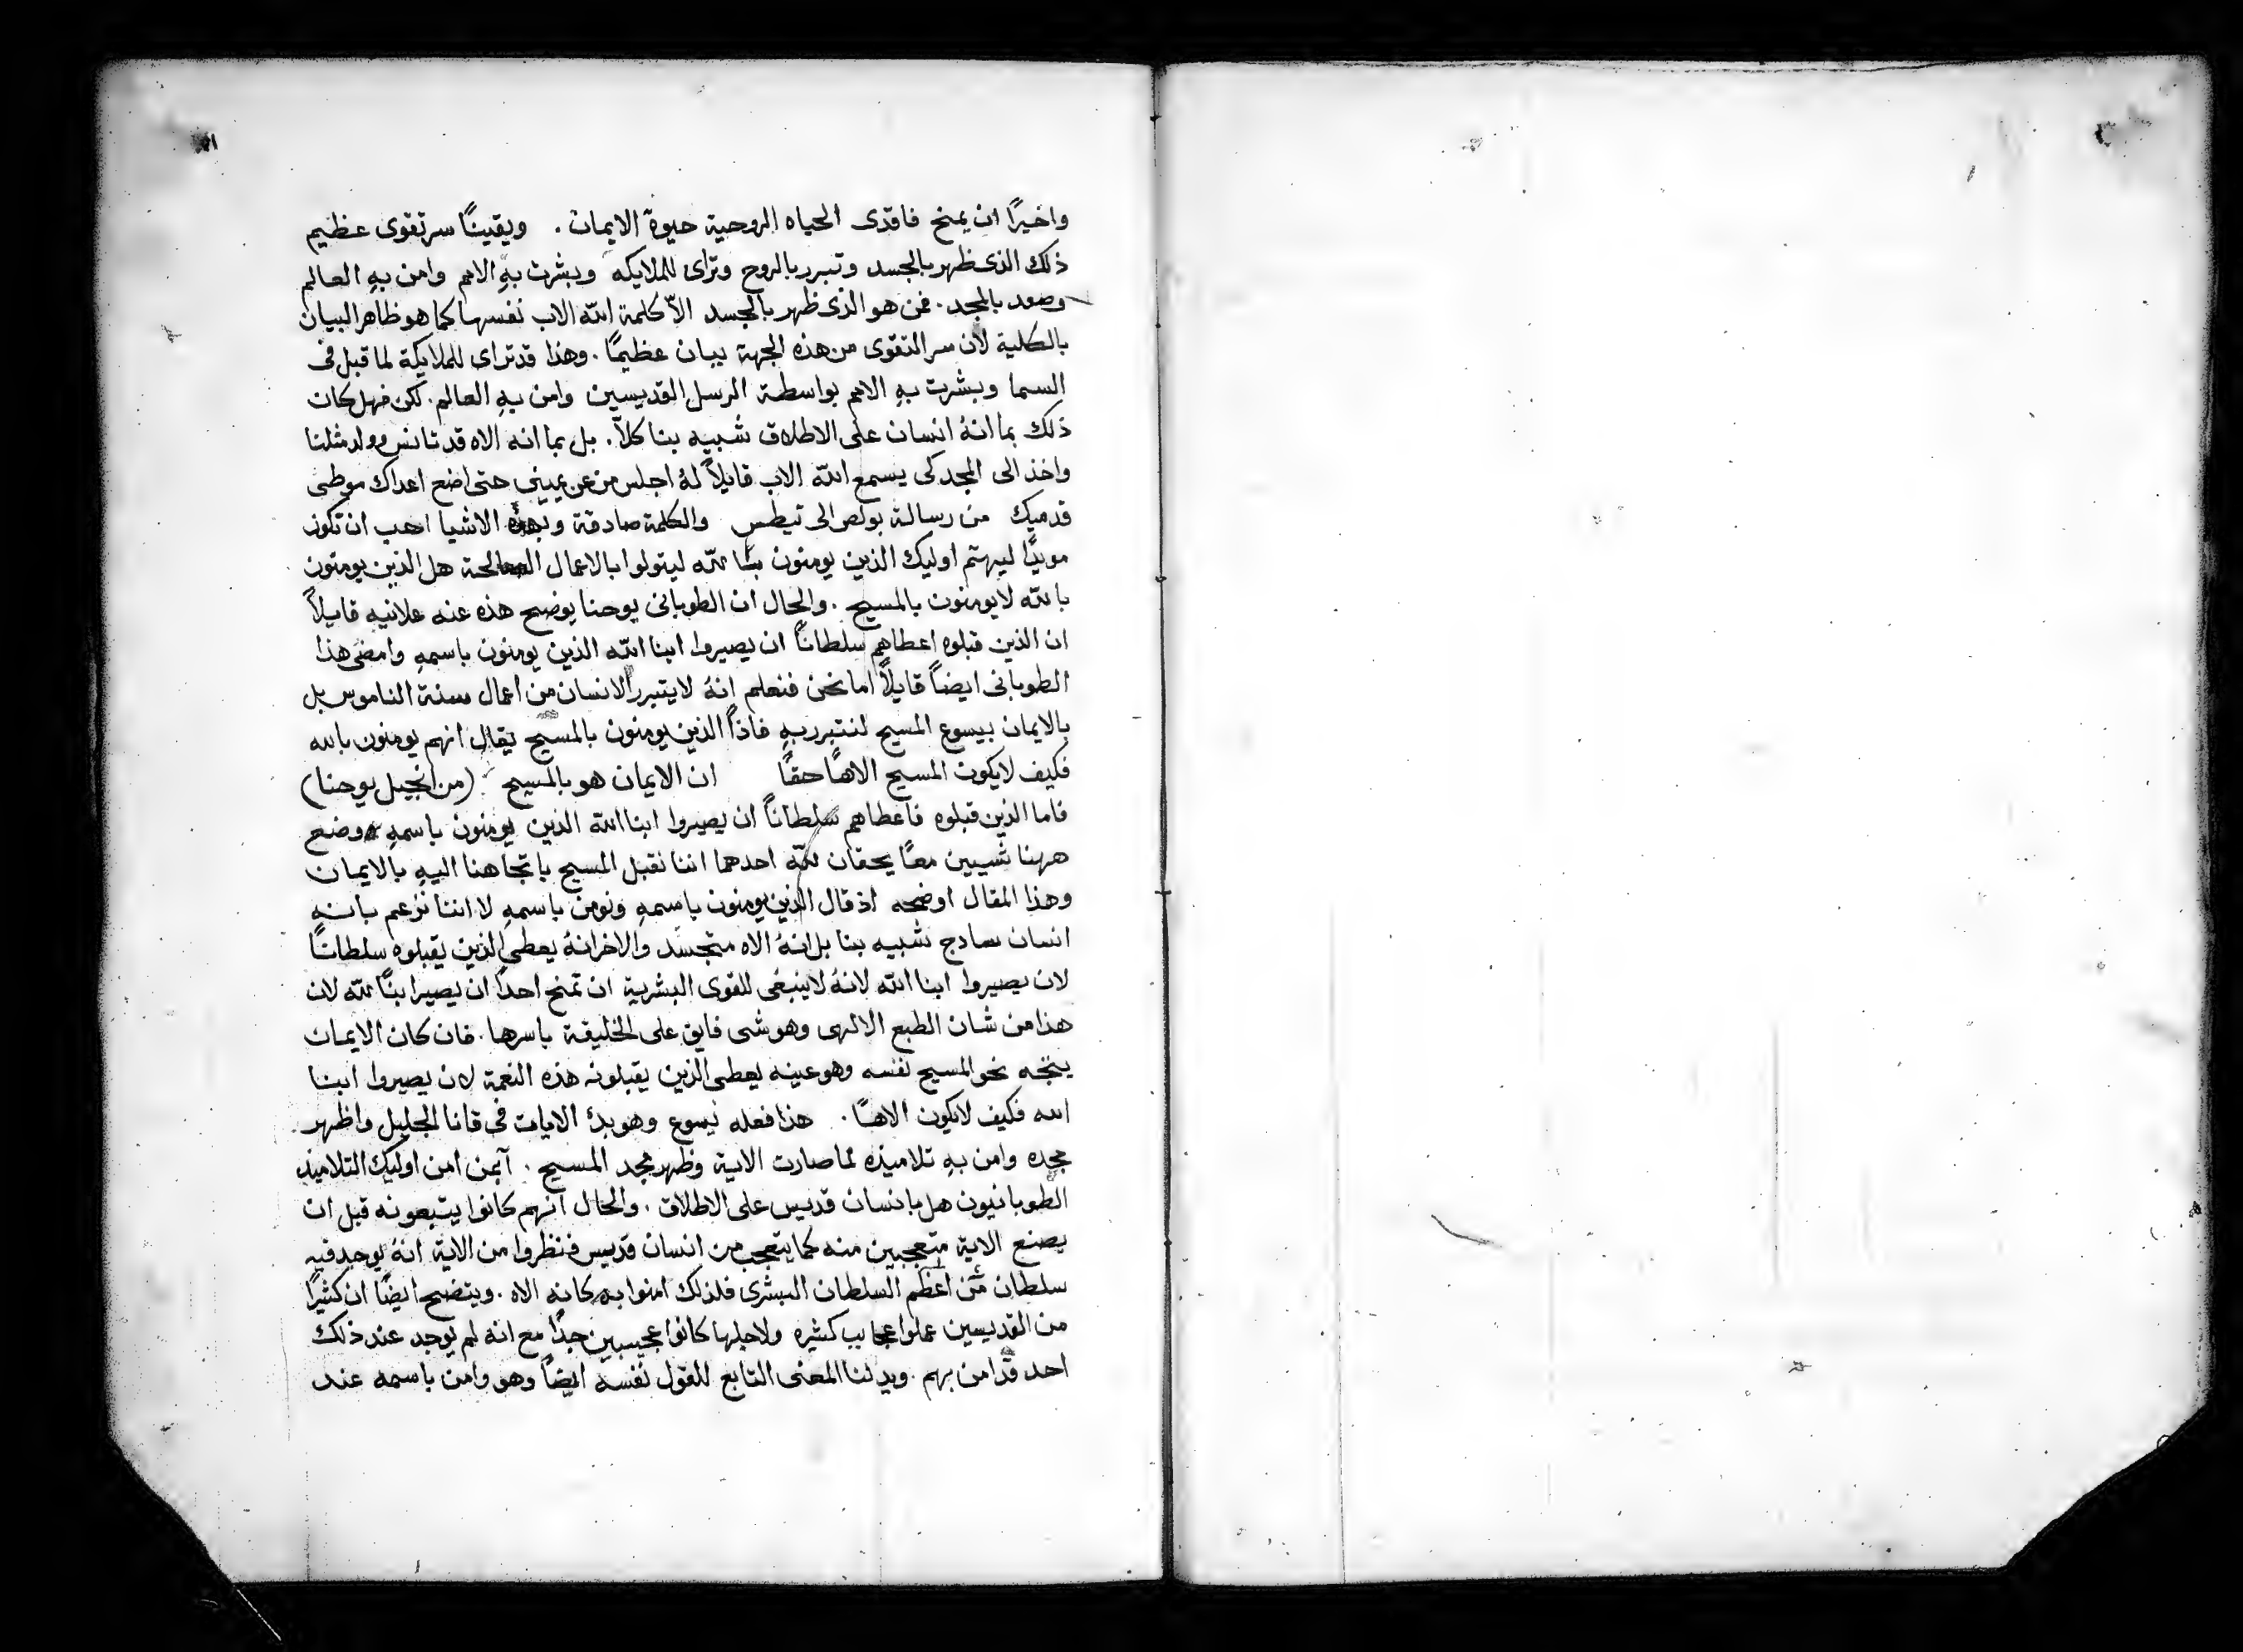 واخيرًا ان يمنح فاقدى الحياه الروحية حيوة الايمان . ويقينًا سر تقوى عظيم
ذلك الذى ظهر بالجسد وتبرر بالروح وتراى للملايكه وبشرت بهِ الامم وامن بهِ العالم
وصعد بالمجد . فمن هو الذى ظهر بالجسد الاّ كلمة الله الاب نفسها كما هو ظاهر البيان
بالكلية لان سر التقوى من هذه الجهة يبان عظيمًا . وهذا قد تراى للملايكة لما قبل فى
السما وبشرت بهِ الامم بواسطة الرسل القديسين وامن بهِ العالم . لكن فهل كان
ذلك بما انهُ انسان على الاطلاق شبيه بنا كلاّ . بل بما انه الاه قد تانس وولد مثلنا
واخذ الى المجد كى يسمع الله الاب قايلاً لهُ اجلس من عن يمينى حتى اضع اعداك موطى
قدميك من رسالة بولص الى تيطس والكلمة صادقة وبهذه الاشيا احب ان تكون
مويدًا ليهتم اوليك الذين يومنون بالله ليتولوا بالاعمال الصالحة هل الذين يومنون
بالله لا يومنون بالمسيح . والحال ان الطوبانى يوحنا يوضح هذه عنه علانيه قايلاً
ان الذين قبلوه اعطاهم سلطانًا ان يصيروا ابنا الله الذين يومنون باسمهِ وامضى هذا
الطوبانى ايضاً قايلاً اما نحن فنعلم انهُ لا يتبرر الانسان من اعمال سنة الناموس بل
بالايمان بيسوع المسيح لنتبرر بهِ فاذاً الذين يومنون بالمسيح يقال انهم يومنون بالله
فكيف لا يكون المسيح الاهًا حقًا ان الايمان هو بالمسيح (من انجيل يوحنا)
فاما الذين قبلوه فاعطاهم سلطاناً ان يصيروا ابنا الله الذين يومنون باسمهِ وضع
ههنا شييين معًا يحقان لله احدهما اننا نقبل المسيح باتجاهنا اليهِ بالايمان
وهذا المقال اوضحه اذ قال الذين يومنون باسمهِ ونومن باسمهِ لا اننا نزعم بانهِ
انسان سادج شبيه بنا بل انهُ الاه متجسد والاخر انهُ يعطى الذين يقبلوه سلطانًا
لان يصيروا ابنا الله لانهُ لا ينبغى للقوى البشرية ان تمنح احداً ان يصير ابنًا لله لان
هذا من شان الطبع الالهى وهو شى فايق على الخليقة باسرها . فان كان الايمان
يتجه نحو المسيح نفسه وهو عينه يعطى الذين يقبلونه هذه النعمة لان يصيروا ابنا
الله فكيف لا يكون الاهًا . هذا فعله يسوع وهو بدُ الايات فى قانا الجليل واظهر
مجده وامن بهِ تلاميذه لما صارت الاية وظهر مجد المسيح . آبمن امن اوليك التلاميذ
الطوبانيون هل بانسان قديس على الاطلاق . والحال انهم كانوا يتبعونه قبل ان
يصنع الاية متعجبين منه كما يتعجب من انسان قديس فنظروا من الاية انهُ يوجد فيه
سلطان اعظم السلطان البشرى فلذلك امنوا به كانه الاه . ويتضح ايضًا ان كثيرًا
من القديسين عملوا عجايب كثيره ولاجلها كانوا عجيبين جدًا مع انه لم يوجد عند ذلك
احد قد امن بهم . ويدلنا المعنى التابع للقول نفسه ايضاً وهو وامن باسمه عند